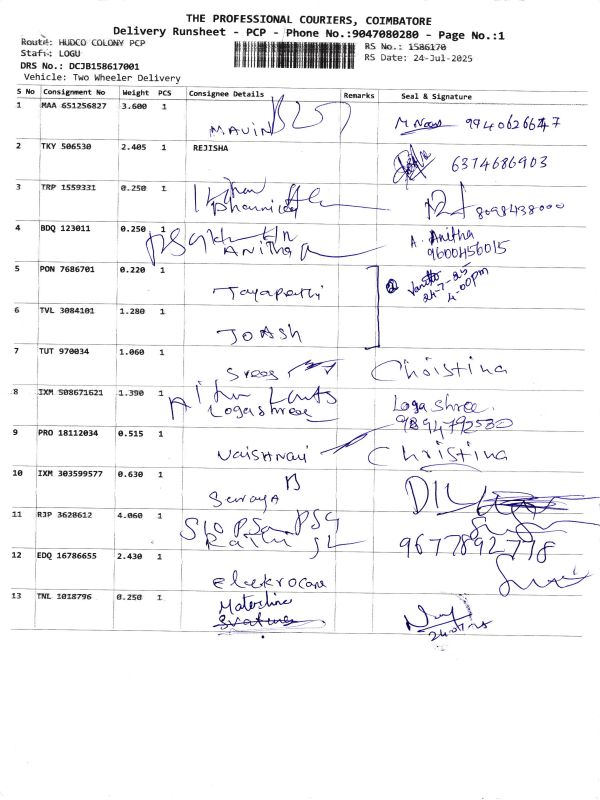 THE PROFESSIONAL COURIERS, COIMBATORE
Delivery Runsheet - PCP - Phone No.:9047080280 - Page No.:1
Route: HUDCO COLONY PCP
RS No.: 1586170
Staff: LOGU
RS Date: 24-Jul-2025
DRS No.: DCJB158617001
Vehicle: Two Wheeler Delivery
S No Consignment No Weight PCS Consignee Details Remarks Seal & Signature
1 MAA 651256827 3.600 1
MAVIN 9940626647
2 TKY 506530 2.405 1 REJISHA
6374686903
3 TRP 1559331 0.250 1
8098438000
4 BDQ 123011 0.250 1
ANitha A. Anitha
9600456015
5 PON 7686701 0.220 1
24-7-25
4-00pm
6 TVL 3084101 1.280 1
JOASh
7 TUT 970034 1.060 1
Sree Christina
8 IXM 508671621 1.390 1
Logashree Logashree.
9894792530
9 PRO 18112034 0.515 1
VaiSHNavi Christina
10 IXM 303599577 0.630 1
Suraya
11 RJP 3628612 4.060 1
9677892778
12 EDQ 16786655 2.430 1
electrocare
13 TNL 1018796 0.250 1
24-07-25